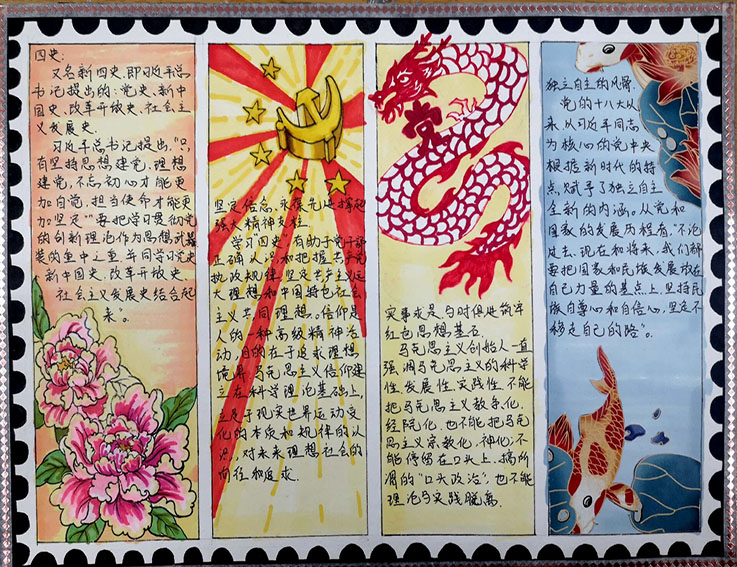 四史:
又名新四史,即习近平总
书记提出的:党史、新中
国史、改革开放史、社会主
义发展史。
习近平总书记提出,"只
有坚持思想建党、理想
建党,不忘初心才能更
加自觉,担当使命才能更
加坚定""要把学习贯彻党
的创新理论作为思想武装
装的重中之重,并同学习党史
新中国史、改革开放史
社会主义发展史结合起
来"。
坚定信念,永葆先进撑起
强大精神支柱
学习四史,有助于党干部
正确认识和把握共产党
执政规律,坚定共产主义远
大理想和中国特色社会
主义共同理想。信仰是
人的一种高级精神活
动,目的在于追求理想
境界,马克思主义信仰建
立在科学理论基础上,
立足于现实世界运动变
化的本质和规律的认
识,对未来理想社会的
向往和追求.
党
实事求是与时俱进筑牢
红色思想基石
马克思主义创始人一直
强调马克思主义的科学
性、发展性、实践性,不能
把马克思主义教条化、
经院化,也不能把马克
思主义宗教化、神化;不
能停留在口头上,搞所
谓的"口头政治",也不能
理论与实践脱离.
独立自主的风骨.
党的十八大以
来,从习近平同志
为核心的党中央
根据新时代的特
点,赋予了独立自主
全新的内涵。从党和
国家的发展历程看,"不论
过去、现在和将来,我们都
要把国家和民族发展放在
自己力量的基点上,坚持民
族自尊心和自信心,坚定不
移走自己的路"。